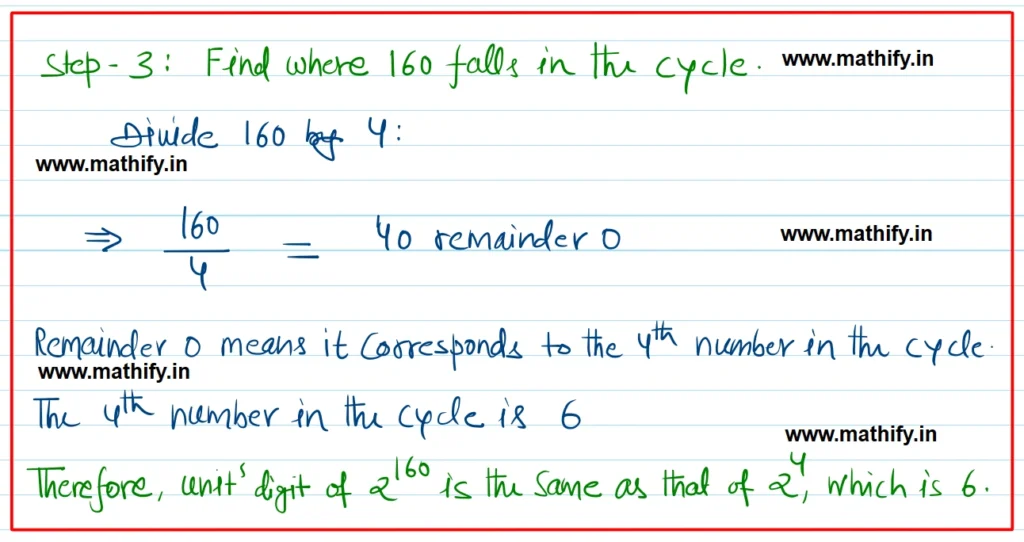 Step - 3: Find where 160 falls in the cycle. www.mathify.in
Divide 160 by 4:
www.mathify.in
⇒ 160/4 = 40 remainder 0 www.mathify.in
Remainder 0 means it corresponds to the 4th number in the cycle.
www.mathify.in
The 4th number in the cycle is 6
www.mathify.in
Therefore, unit's digit of 2^160 is the same as that of 2^4, which is 6.